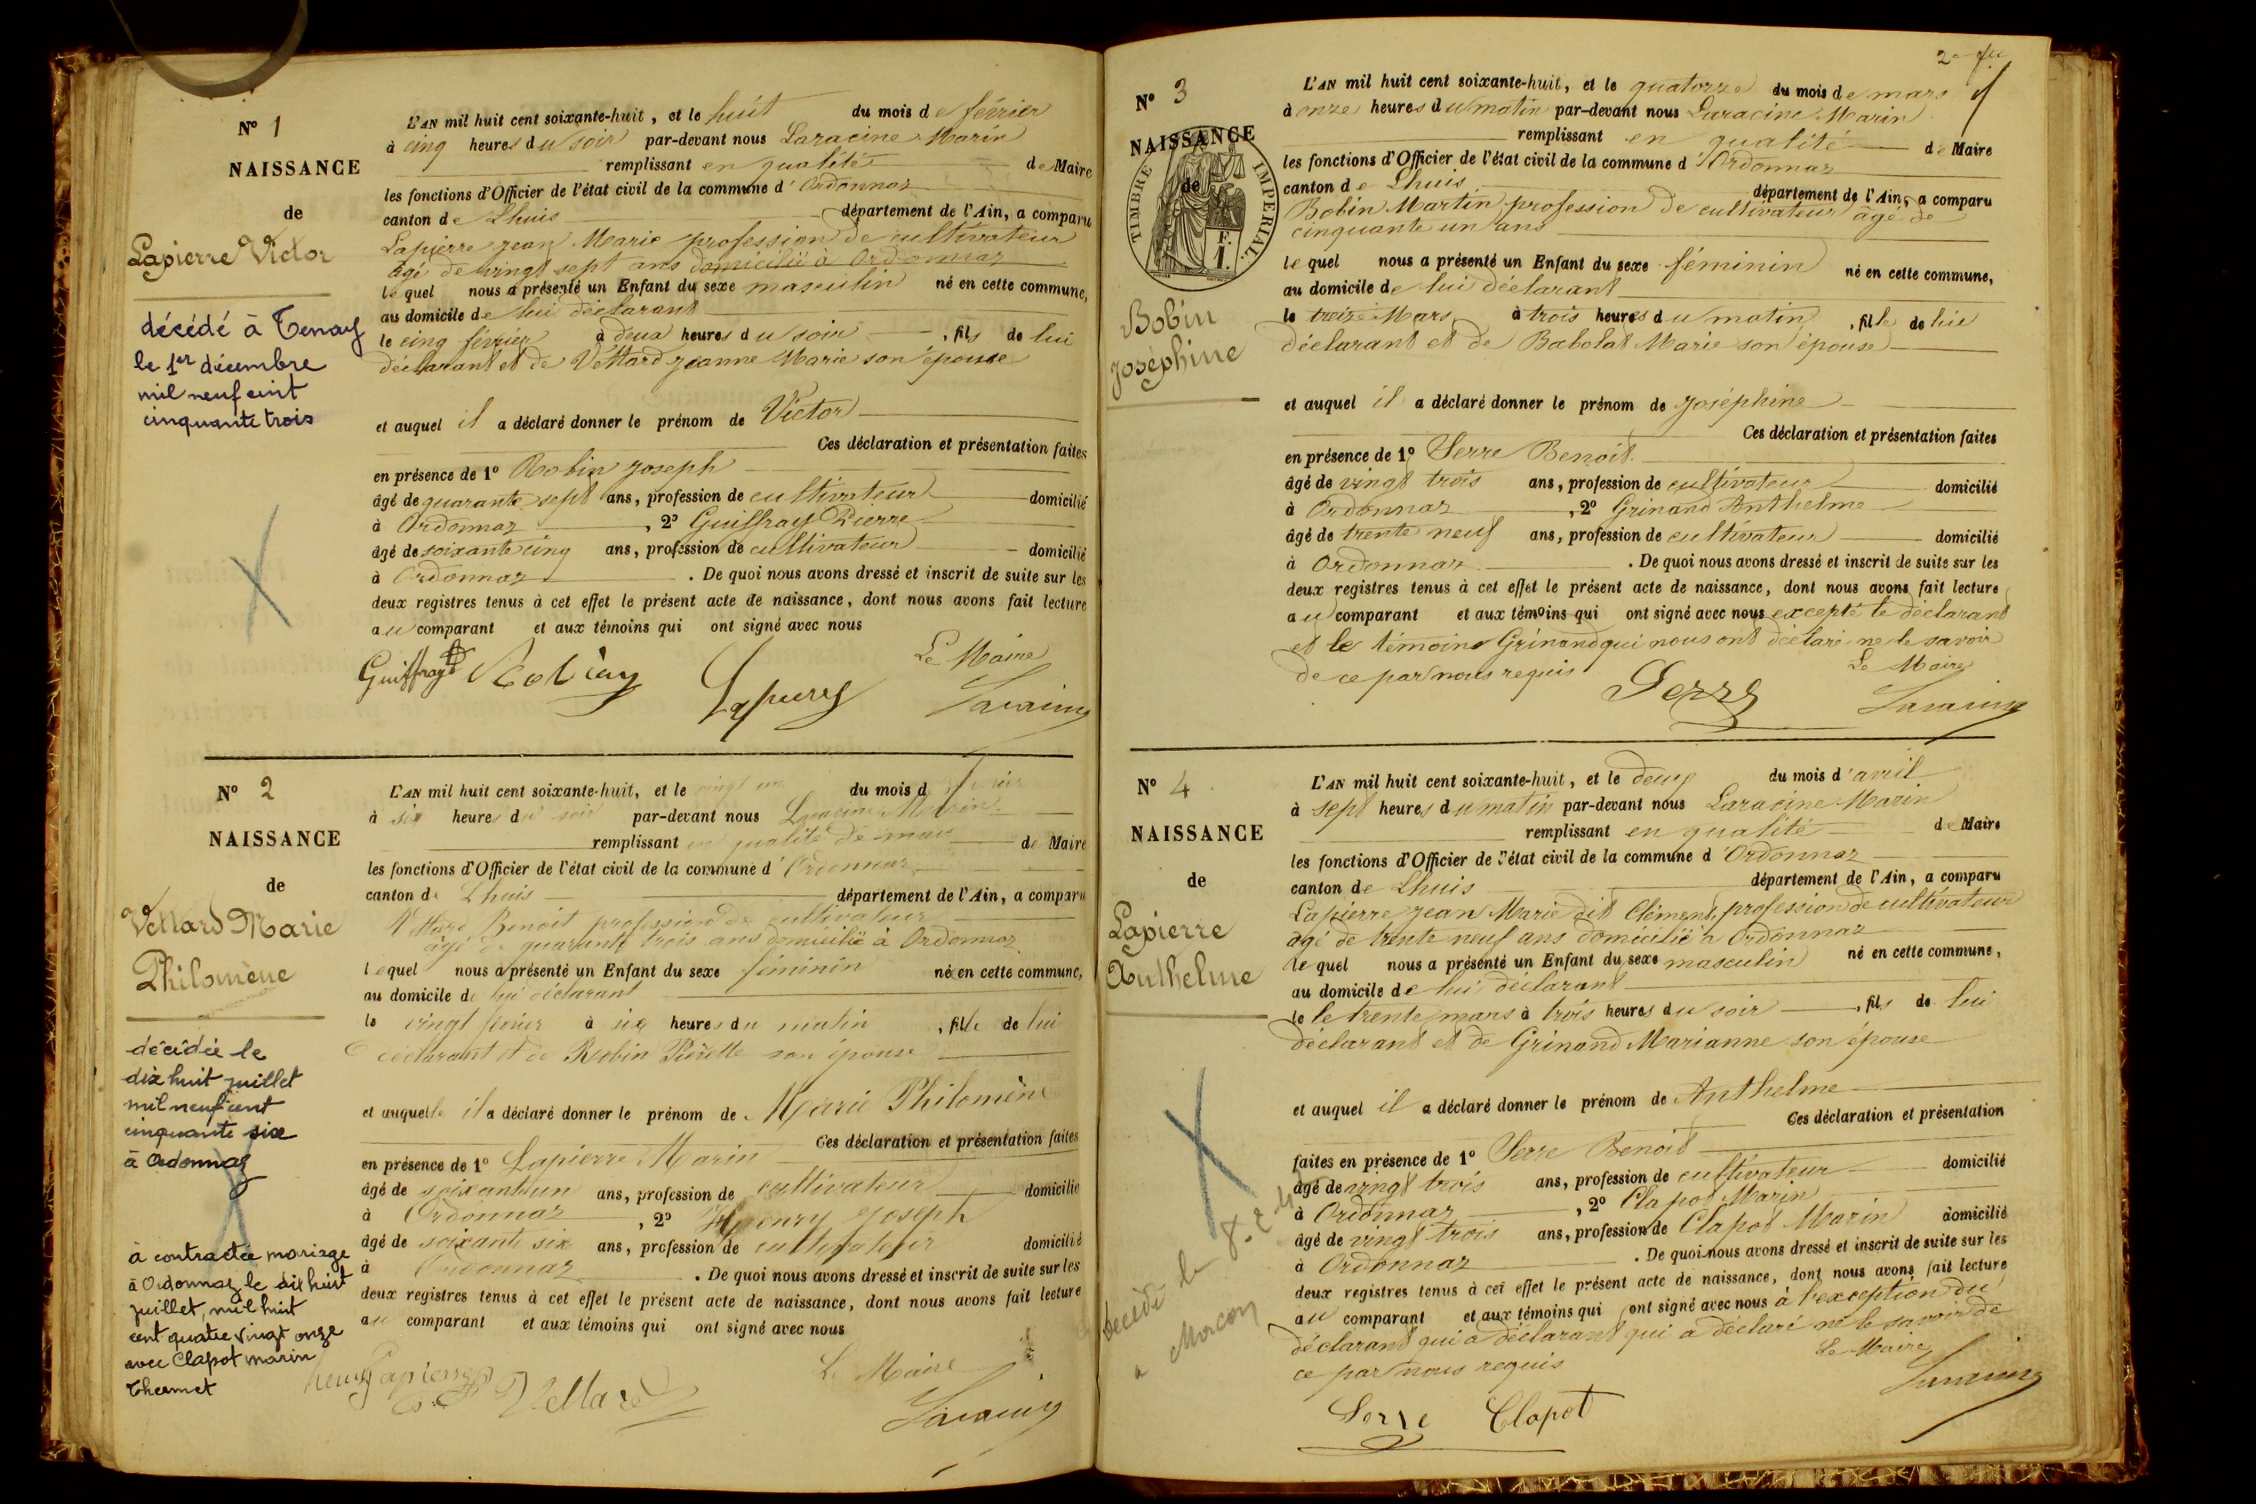 N° 1
NAISSANCE
de
Lapierre Victor
décédé à Tenay
le 1er décembre
mil neuf cent
cinquante trois
L'AN mil huit cent soixante-huit, et le huit du mois de février
à cinq heures du soir par-devant nous Laracine Marin
remplissant en qualité de Maire
les fonctions d'Officier de l'état civil de la commune d'Ordonnaz
canton de Lhuis département de l'Ain, a comparu
Lapierre jean Marie profession de cultivateur
âgé de vingt sept ans domicilié à Ordonnaz
le quel nous a présenté un Enfant du sexe masculin né en cette commune,
au domicile de lui déclarant
le cinq février à deux heures du soir, fils de lui
déclarant et de Vettard jeanne Marie son épouse
et auquel il a déclaré donner le prénom de Victor
Ces déclaration et présentation faites
en présence de 1° Robin joseph
âgé de quarante sept ans, profession de cultivateur domicilié
à Ordonnaz, 2° Guiffray Pierre
âgé de soixante cinq ans, profession de cultivateur domicilié
à Ordonnaz. De quoi nous avons dressé et inscrit de suite sur les
deux registres tenus à cet effet le présent acte de naissance, dont nous avons fait lecture
au comparant et aux témoins qui ont signé avec nous
Le Maire
Guiffray Robin Lapierre Laracine
N° 2
NAISSANCE
de
Vettard Marie
Philomène
décédée le
dix huit juillet
mil neuf cent
cinquante six
à Ordonnaz
à contractée mariage
à Ordonnaz le dix huit
juillet, mil huit
cent quatre vingt onze
avec Clapot marin
Thermet
L'AN mil huit cent soixante-huit, et le vingt un du mois d février
à six heures du soir par-devant nous Laracine Marin
remplissant en qualité de maire de Maire
les fonctions d'Officier de l'état civil de la commune d'Ordonnaz
canton de Lhuis département de l'Ain, a comparu
Vettard Benoit profession de cultivateur
âgé de quarante trois ans domicilié à Ordonnaz
lequel nous a présenté un Enfant du sexe féminin né en cette commune,
au domicile de lui déclarant
le vingt février à six heures du matin, fille de lui
déclarant et de Robin Pierrette son épouse
et auquelle il a déclaré donner le prénom de Marie Philomène
Ces déclaration et présentation faites
en présence de 1° Lapierre Marin
âgé de soixante un ans, profession de cultivateur domicilié
à Ordonnaz, 2° joseph
âgé de soixante six ans, profession de cultivateur domicilié
à Ordonnaz. De quoi nous avons dressé et inscrit de suite sur les
deux registres tenus à cet effet le présent acte de naissance, dont nous avons fait lecture
au comparant et aux témoins qui ont signé avec nous
Le Maire
Lapierre Vettard Laracine
N° 3
NAISSANCE
de
TIMBRE IMPÉRIAL
F.
1.
Bobin
Joséphine
L'AN mil huit cent soixante-huit, et le quatorze du mois de mars
à onze heures du matin par-devant nous Laracine Marin
remplissant en qualité de Maire
les fonctions d'Officier de l'état civil de la commune d'Ordonnaz
canton de Lhuis département de l'Ain, a comparu
Bobin Martin profession de cultivateur âgé de
cinquante un ans
le quel nous a présenté un Enfant du sexe féminin né en cette commune,
au domicile de lui déclarant
le treize Mars à trois heures du matin, fille de lui
déclarant et de Babolat Marie son épouse
et auquel il a déclaré donner le prénom de joséphine
Ces déclaration et présentation faites
en présence de 1° Serre Benoit
âgé de vingt trois ans, profession de cultivateur domicilié
à Ordonnaz, 2° Grinand Anthelme
âgé de trente neuf ans, profession de cultivateur domicilié
à Ordonnaz. De quoi nous avons dressé et inscrit de suite sur les
deux registres tenus à cet effet le présent acte de naissance, dont nous avons fait lecture
au comparant et aux témoins qui ont signé avec nous excepté le déclarant
et le témoins Grinand qui nous ont déclaré ne le savoir
de ce par nous requis
Le Maire
Serre Laracine
N° 4
NAISSANCE
de
Lapierre
Anthelme
L'AN mil huit cent soixante-huit, et le deux du mois d'avril
à sept heures du matin par-devant nous Laracine Marin
remplissant en qualité de Maire
les fonctions d'Officier de l'état civil de la commune d'Ordonnaz
canton de Lhuis département de l'Ain, a comparu
Lapierre jean Marie dit Clément, profession de cultivateur
âgé de trente neuf ans domicilié à Ordonnaz
le quel nous a présenté un Enfant du sexe masculin né en cette commune,
au domicile de lui déclarant
le le trente mars à trois heures du soir, fils de lui
déclarant et de Grinand Marianne son épouse
et auquel il a déclaré donner le prénom de Anthelme
Ces déclaration et présentation
faites en présence de 1° Serre Benoit
âgé de vingt trois ans, profession de cultivateur domicilié
à Ordonnaz, 2° Clapot Marin
âgé de vingt trois ans, profession de Clapot Marin domicilié
à Ordonnaz. De quoi nous avons dressé et inscrit de suite sur les
deux registres tenus à cet effet le présent acte de naissance, dont nous avons fait lecture
au comparant et aux témoins qui ont signé avec nous à l'exception du
déclarant qui a déclarant qui a déclaré ne le savoir de
ce par nous requis
Le Maire
Serre Clapot Laracine
décédé le
a